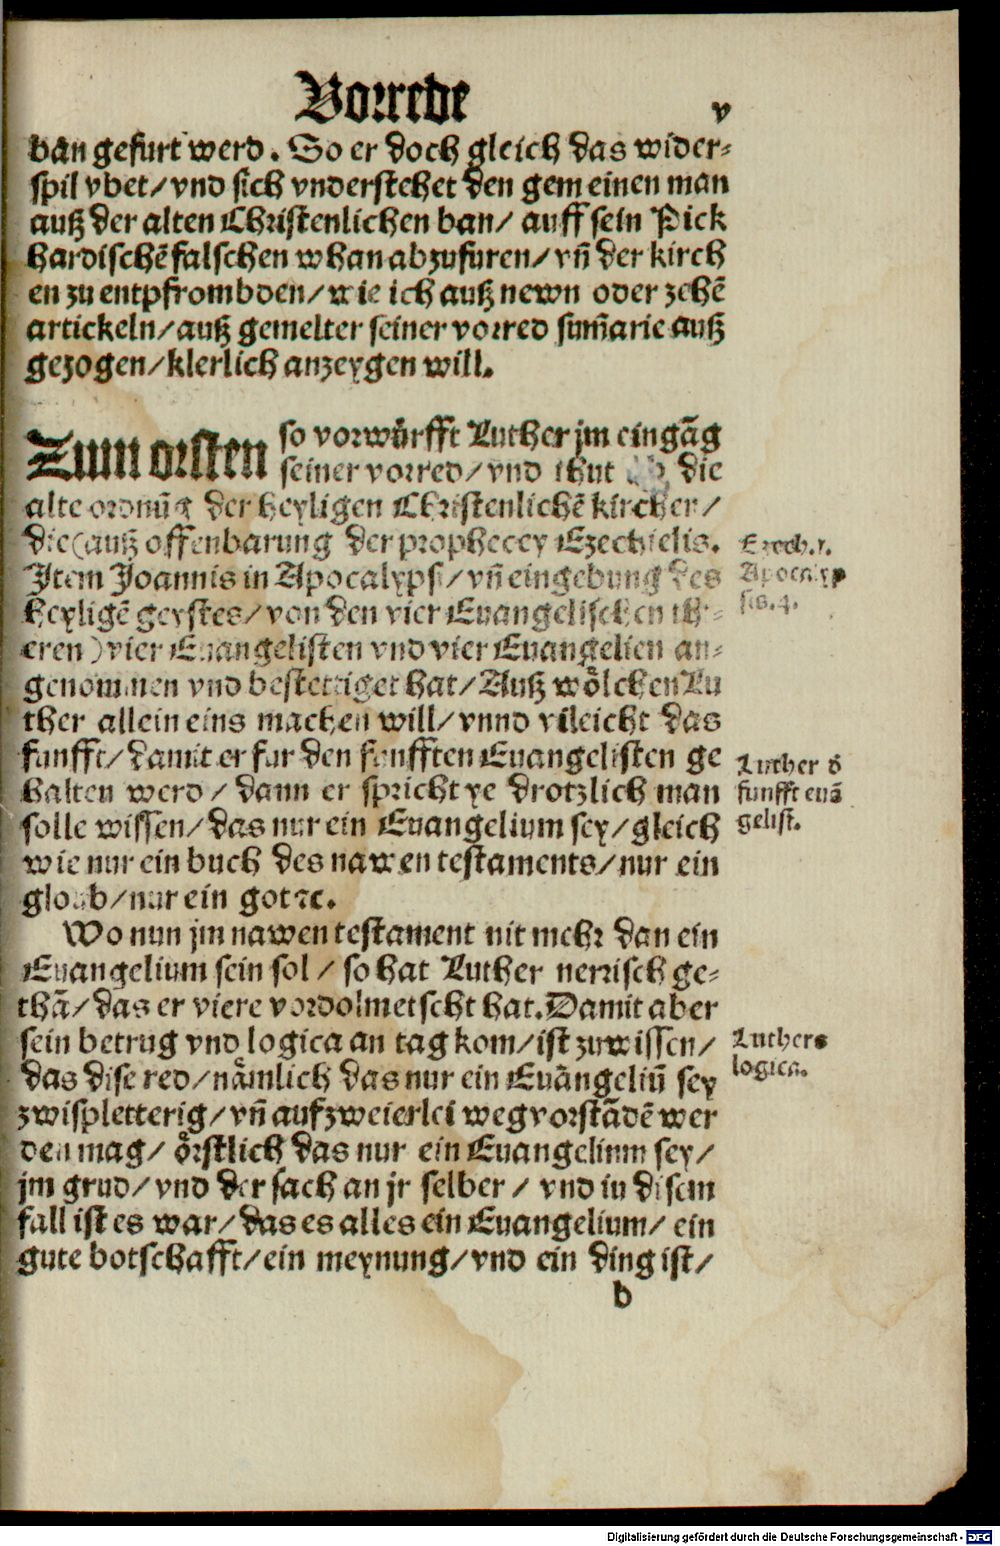 Vorrede
v
ban gefurt werd. So er doch gleich das wider-
spil vbet/vnd sich vnderstehet den gemeinen man
auß der alten Christenlichen ban/ auff sein Pick
hardischē falschen whan abzufuren/vn̄ der kirch
en zu entpfrombden/wie ich auß newn oder zehē
artickeln/auß gemelter seiner vorred sum̄arie auß
gezogen/klerlich anzeygen will.
Zum ersten so vorwürfft Luther jm eingāg
seiner vorred/vnd thut die
alte ordnūg der heyligen Christenlichē kirchen/
die(auß offenbarung der prophecey Ezechielis.
Item Joannis in Apocalypsi/vn̄ eingebung des
heyligē geystes/von den vier Euangelischen th-
eren)vier Euangelisten vnd vier Euangelien an-
genommen vnd bestettiget hat/Auß wölchen Lu
ther allein eins machen will/vnnd vileicht das
funfft/damit er fur den funfften Euangelisten ge
halten werd/ dann er spricht ye drotzlich man
solle wissen/das nur ein Euangelium sey/gleich
wie nur ein buch des nawen testaments/nur ein
gloub/nur ein got ꝛc.
Wo nun jm nawen testament nit mehr dan ein
Euangelium sein sol/ so hat Luther nerrisch ge-
thā/das er viere vordolmetscht hat. Damit aber
sein betrug vnd logica an tag kom/ist zuwissen/
das dise red/nämlich das nur ein Euāngeliū sey
zwispletterig/vn̄ auf zweierlei weg vorstādē wer
den mag/ örstlich das nur ein Euangelium sey/
jm grud/vnd der sach an jr selber/ vnd in disem
fall ist es war/das es alles ein Euangelium/ ein
gute botschafft/ein meynung/vnd ein ding ist/
b
Ezech.1.
Apocalyp
sis.4.
Luther d̄
funfft euā
gelist.
Luthers
logica.
Digitalisierung gefördert durch die Deutsche Forschungsgemeinschaft - DFG